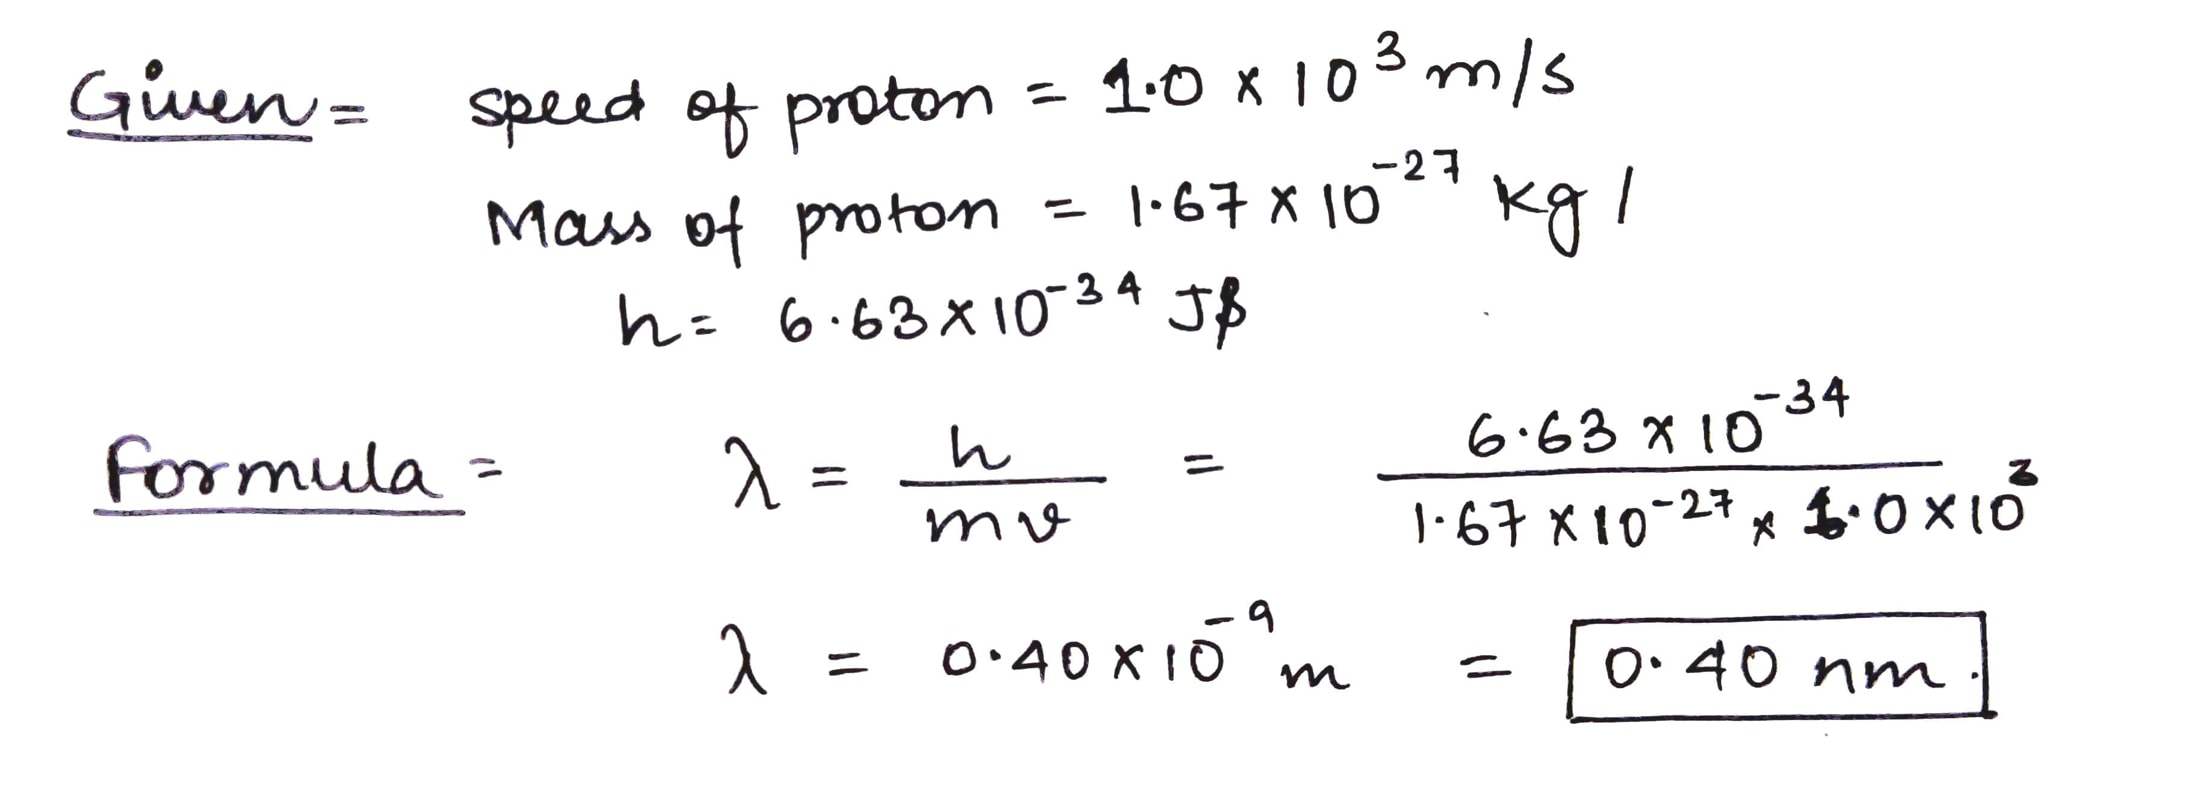 Given = speed of proton = 1.0 × 10³ m/s
Mass of proton = 1.67 × 10⁻²⁷ kg /
h = 6.63 × 10⁻³⁴ J$
Formula = λ = h / mv = 6.63 × 10⁻³⁴ / 1.67 × 10⁻²⁷ × 1.0 × 10³
λ = 0.40 × 10⁻⁹ m = 0.40 nm.